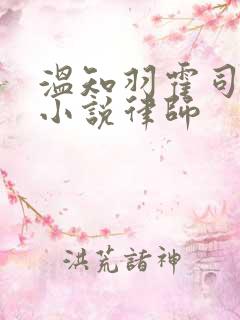 温知羽霍司
小説律師
洪荒諸神